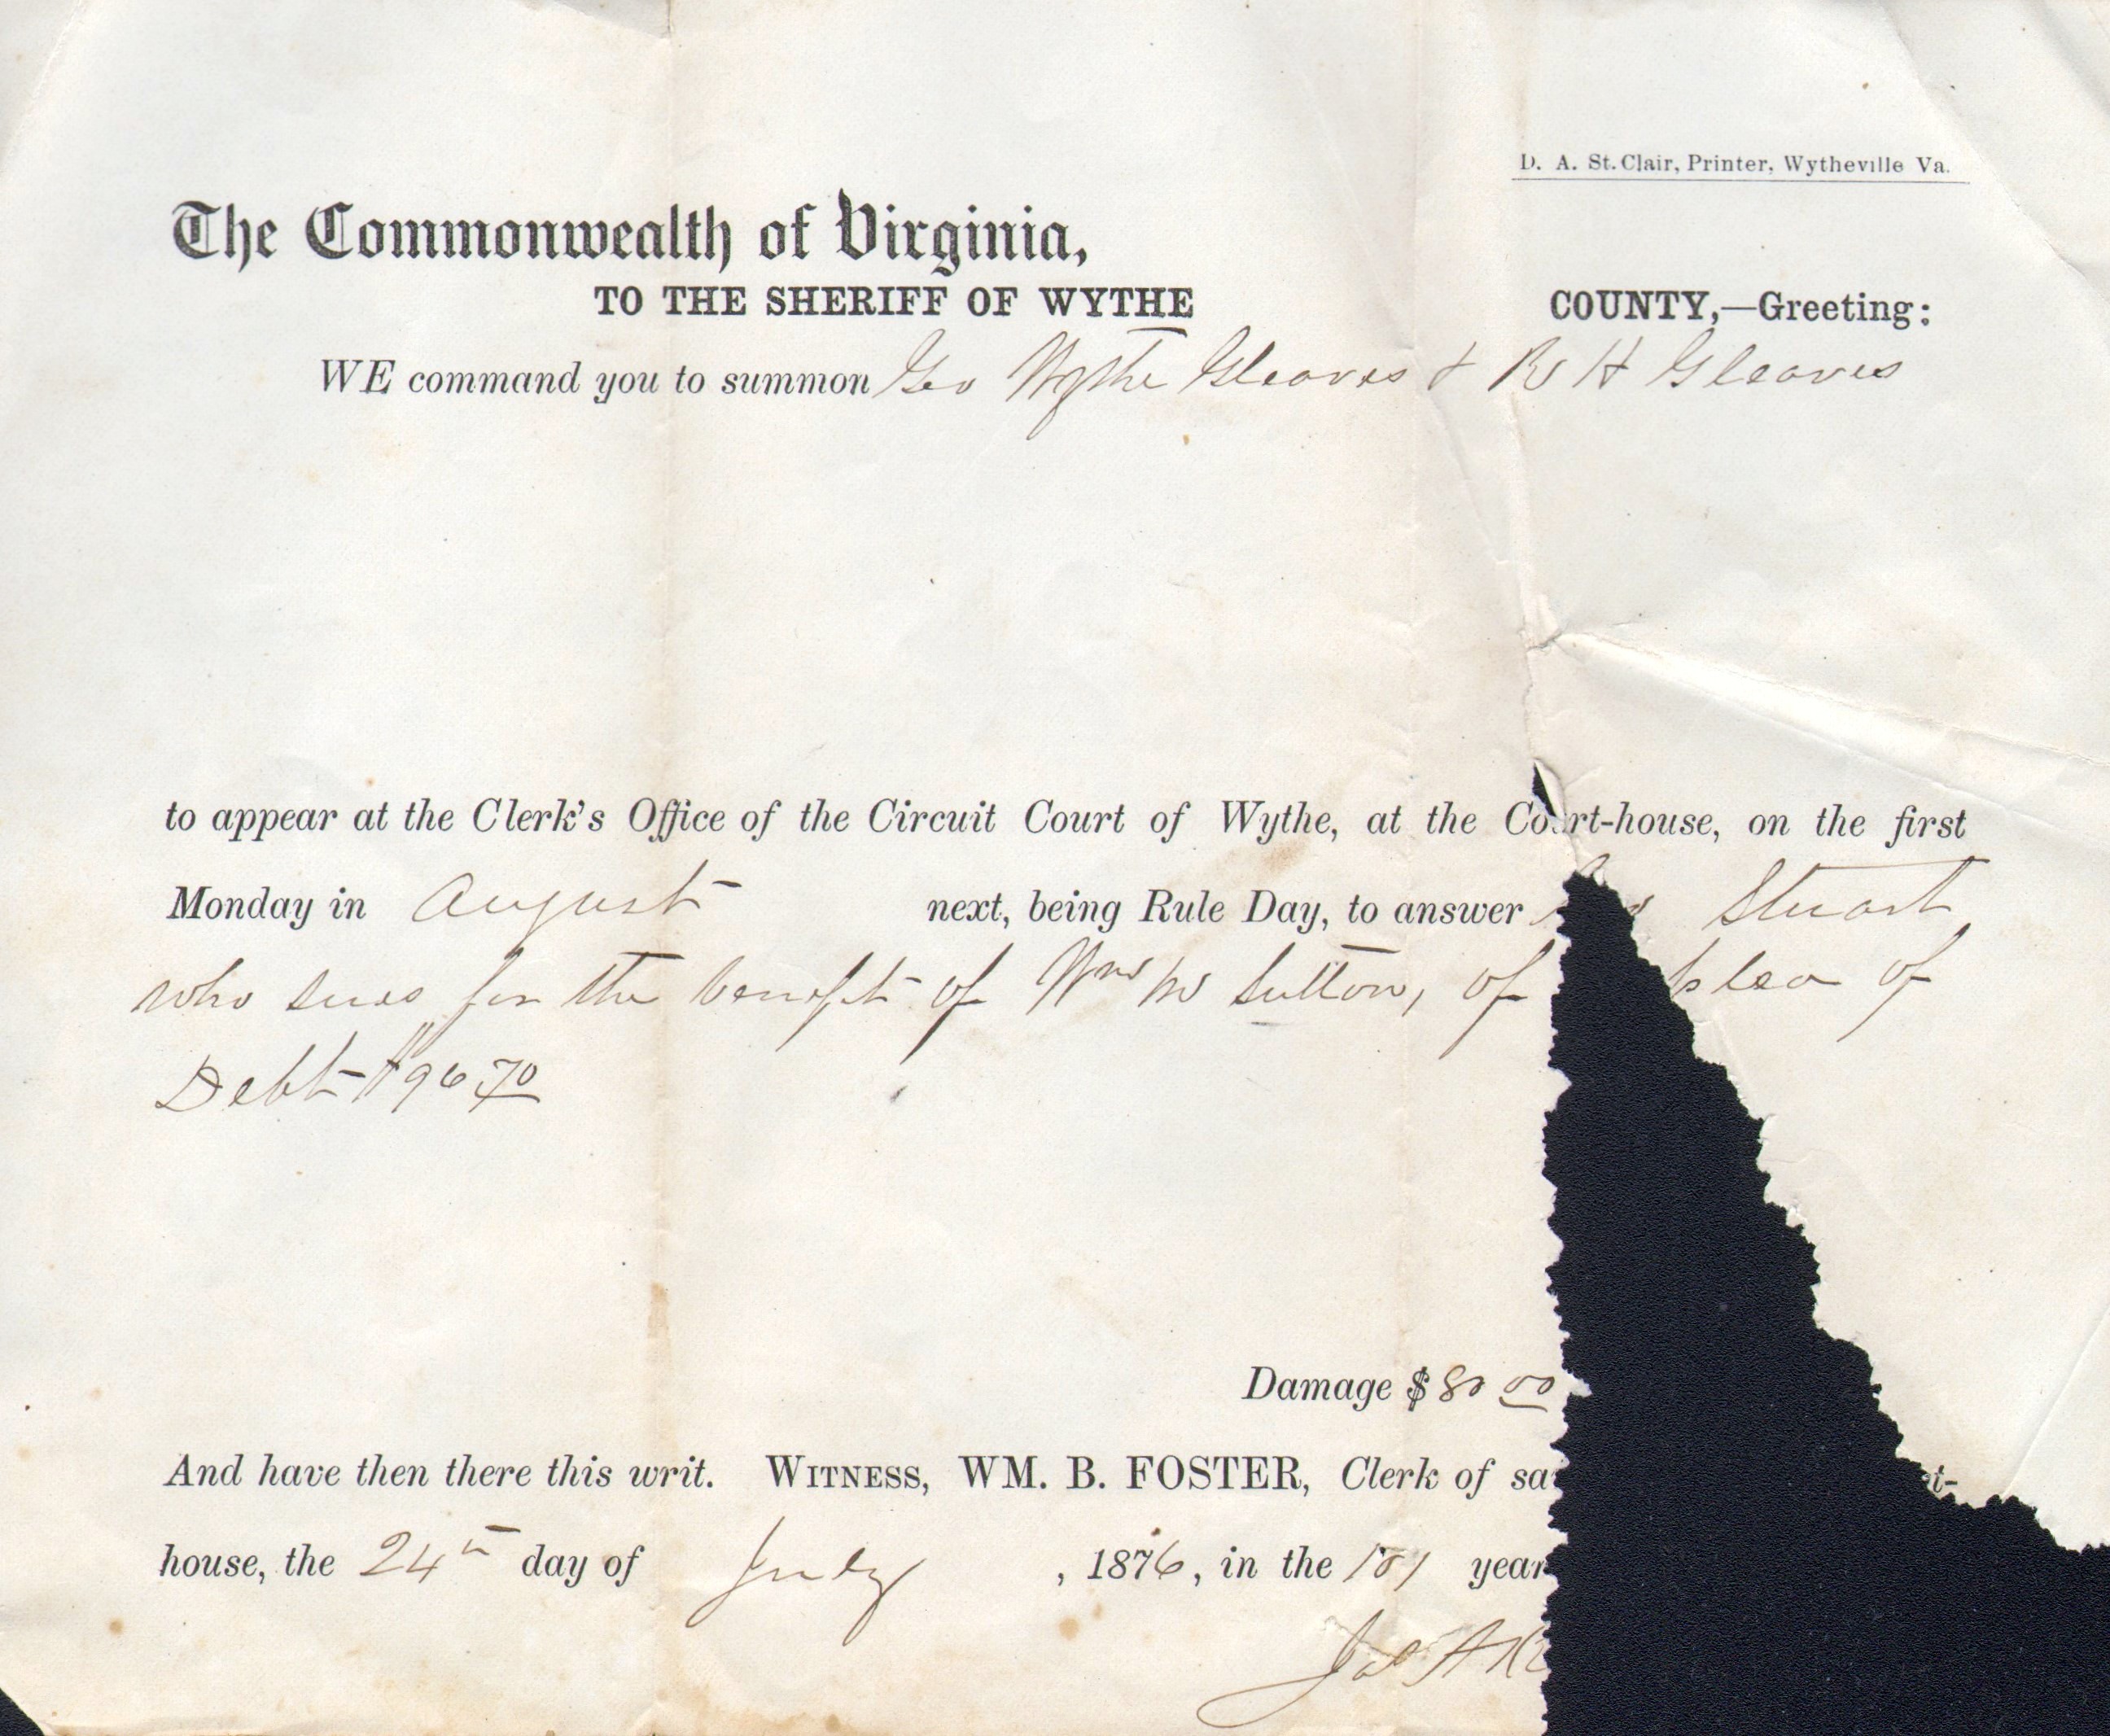 D. A. St. Clair, Printer, Wytheville Va.
The Commonwealth of Virginia,
TO THE SHERIFF OF WYTHE COUNTY,—Greeting:
WE command you to summon Geo Wythe Gleaves & R H Gleaves
to appear at the Clerk's Office of the Circuit Court of Wythe, at the Court-house, on the first
Monday in August next, being Rule Day, to answer Stuart
who sues for the benefit of Wm W Sutton, of plea of
Debt $96 70
Damage $80 00
And have then there this writ. WITNESS, WM. B. FOSTER, Clerk of
house, the 24th day of July , 1876, in the 101 year
Jas A